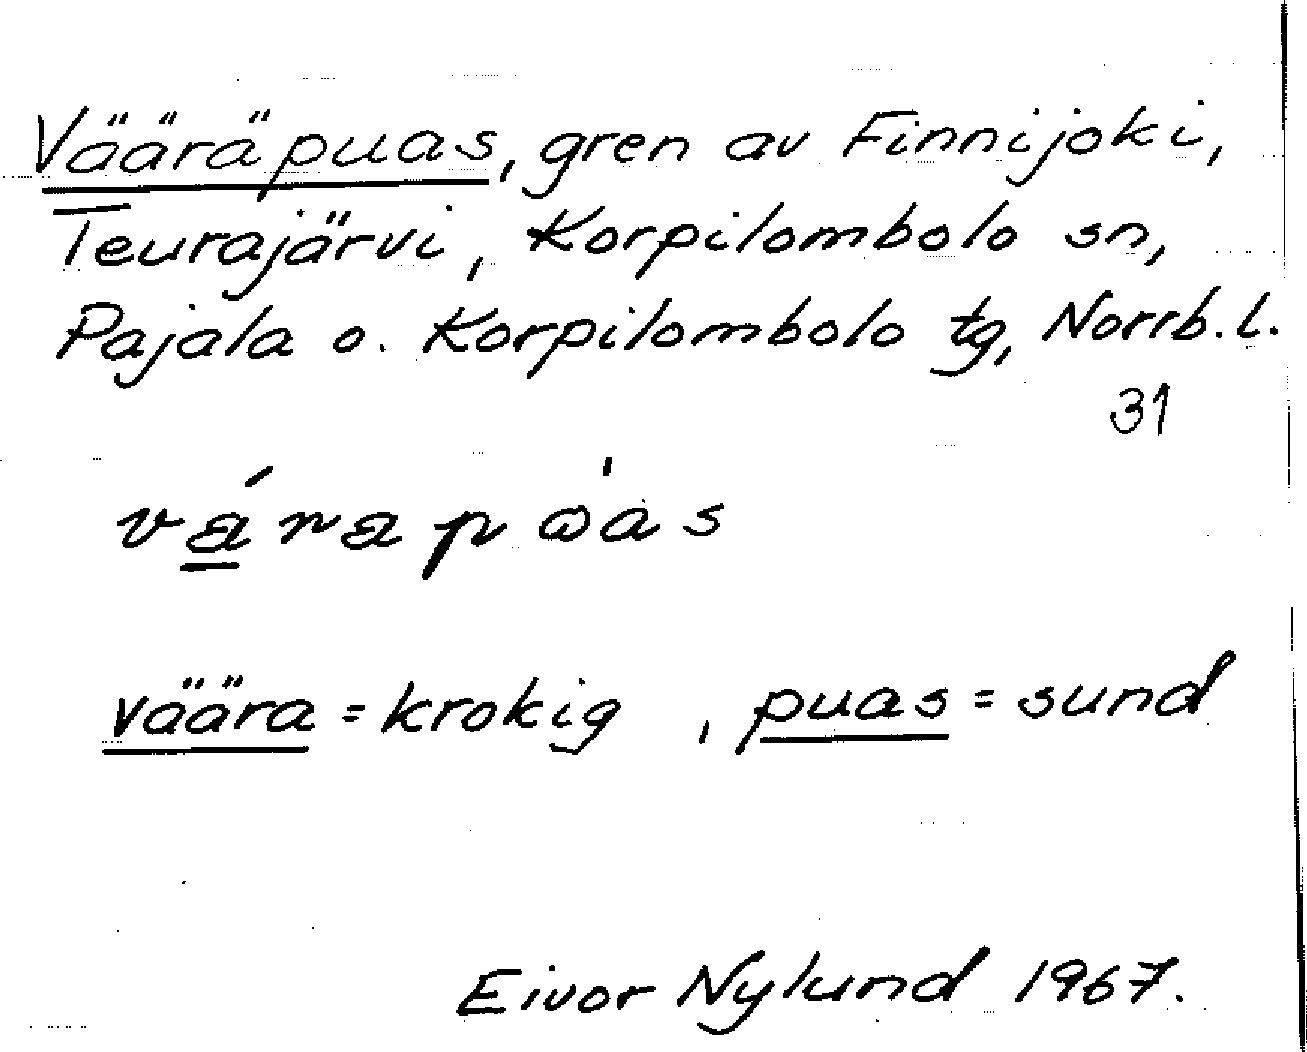 Vääräpuas, gren av Finnijoki,
Teurajärvi, Korpilombolo sn,
Pajala o. Korpilombolo tg, Norrb. l.
31
väära = krokig , puas = sund
Eivor Nylund 1967.